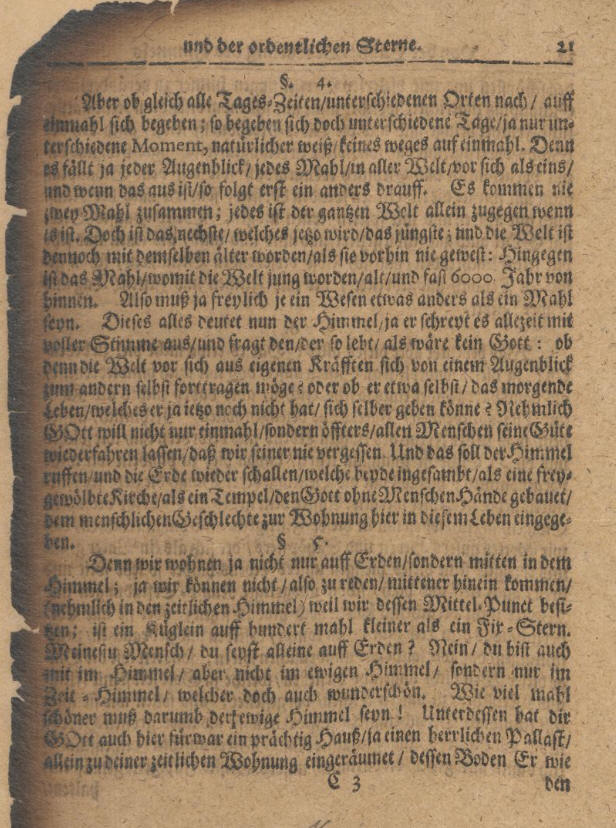 und der ordentlichen Sterne. 21
§. 4.
Aber ob gleich alle Tages-Zeiten/unterschiedenen Orten nach/ auff
einmahl sich begeben; so begeben sich doch unterschiedene Tage/ja nur un-
terschiedene Moment, natürlicher weiß/keines weges auf einmahl. Denn
es fällt ja jeder Augenblick/jedes Mahl/in aller Welt/vor sich als eins/
und wenn das aus ist/so folgt erst ein anders drauff. Es kommen nie
zwey Mahl zusammen; jedes ist der gantzen Welt allein zugegen wenn
es ist. Doch ist das nechste/welches jetzo wird/das jüngste; und die Welt ist
dennoch mit demselben älter worden/als sie vorhin nie gewest: Hingegen
ist das Mahl/womit die Welt jung worden/alt/und fast 6000. Jahr von
hinnen. Also muß ja freylich je ein Wesen etwas anders als ein Mahl
seyn. Dieses alles deutet nun der Himmel/ja er schreyt es allezeit mit
voller Stimme aus/und fragt den/der so lebt/als wäre kein Gott: ob
denn die Welt vor sich aus eigenen Kräfften sich von einem Augenblick
zum andern selbst forttragen möge? oder ob er etwa selbst/das morgende
Leben/welches er ja ietzo noch nicht hat/sich selber geben könne? Nehmlich
GOtt will nicht nur einmahl/sondern öffters/allen Menschen seine Güte
wiederfahren lassen/daß wir seiner nie vergessen. Und das soll der Himmel
ruffen/und die Erde wieder schallen/welche beyde ingesambt/als eine frey-
gewölbte Kirche/als ein Tempel/den Gott ohne Menschen Hände gebauet/
dem menschlichen Geschlechte zur Wohnung hier in diesem Leben eingege-
ben. § 5.
Denn wir wohnen ja nicht nur auff Erden/sondern mitten in dem
Himmel; ja wir können nicht/also zu reden/mittener hinein kommen/
(nehmlich in den zeitlichen Himmel) weil wir dessen Mittel-Punct besi-
tzen; ist ein Küglein auff hundert mahl kleiner als ein Fix-Stern.
Meinestu Mensch/du seyst alleine auff Erden? Nein/du bist auch
mit im Himmel/aber nicht im ewigen Himmel/sondern nur im
Zeit-Himmel/welcher doch auch wunderschön. Wie viel mahl
schöner muß darumb der ewige Himmel seyn! Unterdessen hat dir
GOtt auch hier fürwar ein prächtig Hauß/ja einen herrlichen Pallast/
allein zu deiner zeitlichen Wohnung eingeräumet/dessen Boden Er wie
C 3 den